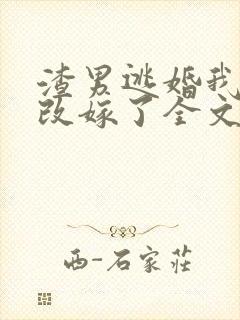 渣男逃婚我
改嫁了全文
西-石家莊